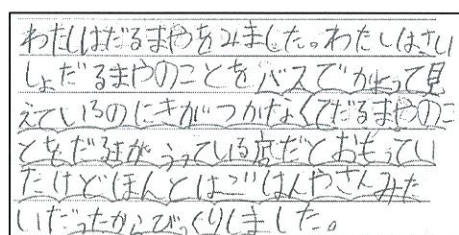 わたしはだるまやをみました。わたしはさい
しょだるまやのことをバスでがよって見
えているのにきがつかなくてだるまやのこ
とをだるまがうっている店だとおもってい
たけどほんとはごはんやさんみた
いだったからびっくりしました。